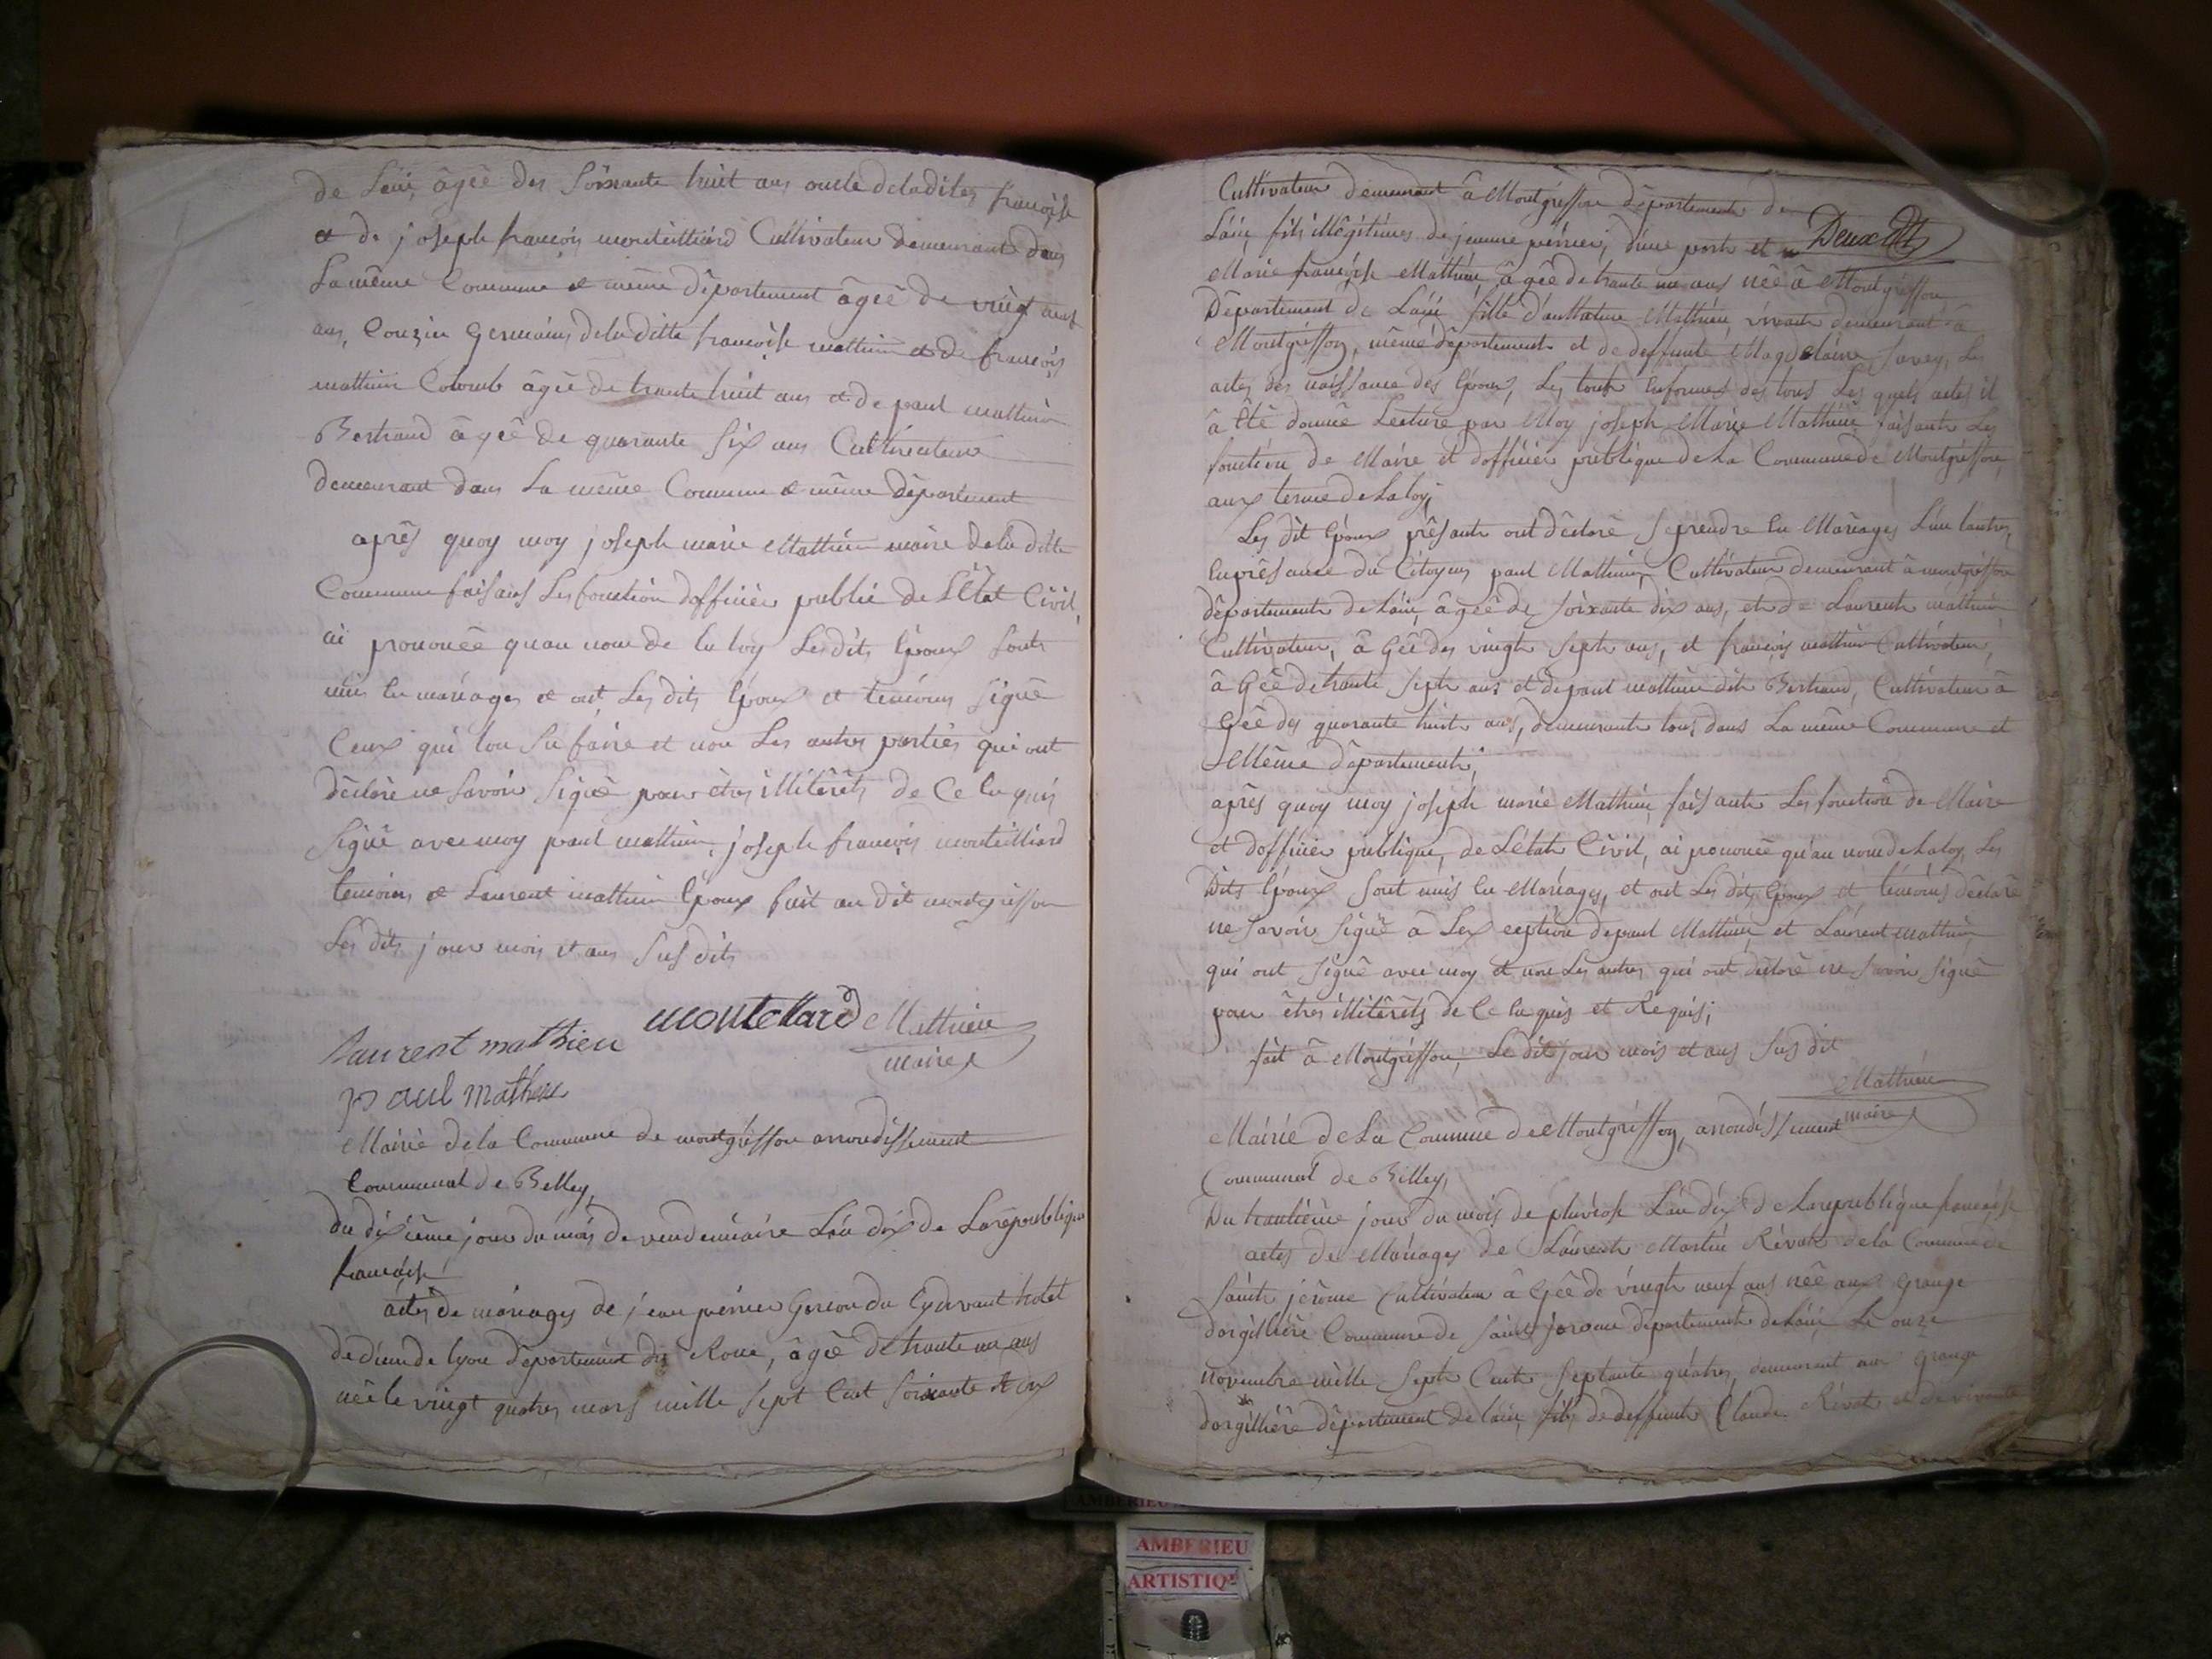 de Lain, âgèe des soixante huit ans oncle deladites françoise
et de joseph françois monteilliard Cultivateur demeurant dans
La même Commune et même département âgèe de vingt neuf
ans, Couzin Germains dela ditte françoise mathieu et de françois
mathieu Colomb âgèe de trante huit ans et de paul mathieu
Bertrand âgèe de quarante six ans Cultivateur
demeurant dans La même Commune et même département
après quoy moy joseph marie Mathieu maire dela ditte
Commune faisans Les fonction dofficier public de L'État Civil,
ai prononcé quau nom de la loy Lesdits Époux sonts
unis en mariages et ont Les dits Époux et temoins signê
Ceux qui lon su faire et non Les autres parties qui ont
déclaré ne savoir signê pour êtres illitérêts de Ce enquis
signê avec moy paul mathieu, joseph françois monteilliard
temoins et Laurent mathieu Époux fait au dit montgriffon
Les dits jour mois et ans sus dits
montellard Mathieu
laurent mathieu maire
paul mathieu
Mairie dela Commune de montgriffon arrondissement
Communal de Belley,
du dixième jour du mois de vendemiaire Lân dix de La république
françoise
actes de mariages de jean perrier Garcon du Cydevant hotel
de dieu de lyon département du Rone, âgèe de trante un ans
née le vingt quatres mars mille sept Cent soixante et onze
Cultivateur demeurant â Montgriffon département de
Lain, fils illégitimes de jeanne perrier, d'une part et
Deux
Marie françoise Mathieu, âgée de trante un ans née â Montgriffon
Département de Lain fille d'anthoine Mathieu vivant demeurant â
Montgriffon, même département et de deffunte Magdelaine savey, Les
actes des naissance des Époux, Les touts enformes des tous Les quels actes il
â Été donnée Lecture par Moy joseph Marie Mathieu faisants Les
fonction de Maire et dofficier publique de La Commune de Montgriffon
aux terme de La loy;
Les dit Époux présants ont déclaré se prendre en Mariages L'un lautres,
En présance du Citoyens paul Mathieu Cultivateur demeurant â montgriffon
département de Lain, âgèe de soixante dix ans, et de Laurent mathieu
Cultivateur, âgée des vingts sept ans, et françois mathieu Cultivateur,
âgèe de trante sept ans et de paul mathieu dit Bertrand, Cultivateur â
gèe des quarante huit ans, demeurants tous dans La même Commune et
Même département;
après quoy moy joseph marie Mathieu, faisants Les fonction de Maire
et dofficier publique, de L'état Civil, ai prononcé qu'au nom de La loy, Les
Dits Époux sont unis en Mariages, et ont Les dits Époux et témoins déclaré
ne savoir signê â Lex ception de paul Mathieu et Laurent mathieu
qui ont signê avec moy et non Les autres qui ont déclaré ne savoir signê
pour êtres illitérêts de Ce enquis et Requis;
fait â Montgriffon, Le dit jour mois et ans sus dit
Mathieu
maire
Mairie de La Commune de Montgriffon, arrondissement
Communal de Billey,
Du trantième jour du mois de pluviose Lân dix de La republique françoise
actes de Mariages de Laurent Martin Rivat dela Commune de
Saint jérome Cultivateur âgèe de vingt neuf ans née aux grange
dorgillière Commune de Saint jerome département de Lain Le onze
novembre mille sept Cent septante quatres, demeurant aux grange
dorgillière département de lain, fils de deffunt Claude Rivat et de vivante
AMBERIEU
AMBERIEU
ARTISTIQ